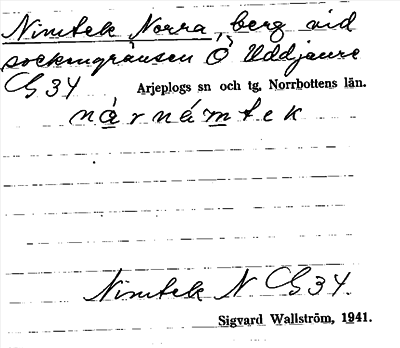 Nimtek Norra, berg vid
sockengränsen Ö Uddjaure
G 34 Arjeplogs sn och tg, Norrbottens län.
nárnámtek
Nimtek N G 34.
Sigvard Wallström, 1941.